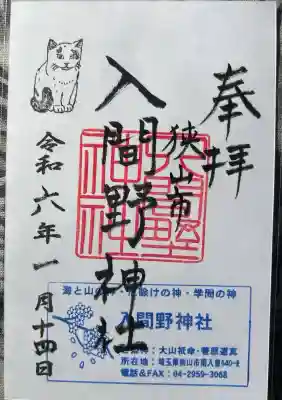 奉拝
狭山市
入間野神社
令和六年一月十四日
海と山の神・厄除けの神・学問の神
入間野神社
大山祇命・菅原道真
所在地：埼玉県狭山市南入曽640-2
電話＆FAX：04-2959-3068